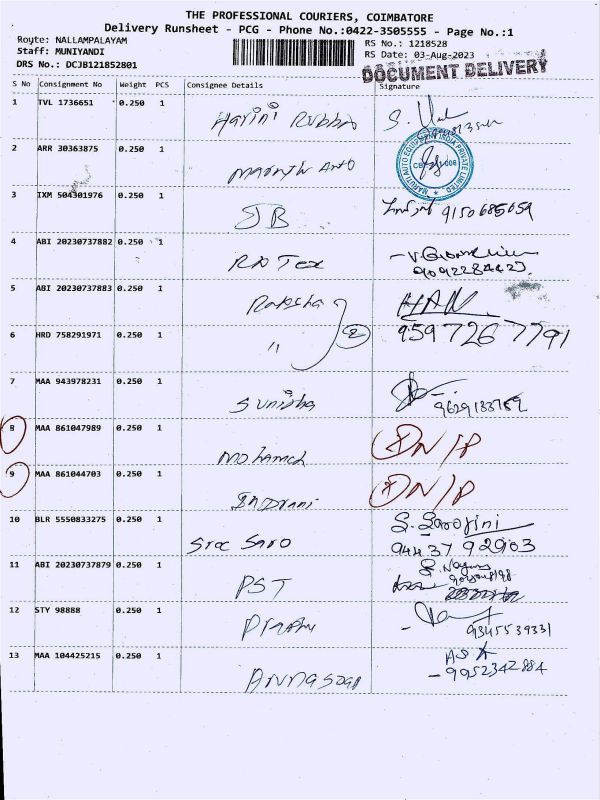 THE PROFESSIONAL COURIERS, COIMBATORE
Delivery Runsheet - PCG - Phone No.:0422-3505555 - Page No.:1
Royte: NALLAMPALAYAM
Staff: MUNIYANDI
DRS No.: DCJB121852801
RS No.: 1218528
RS Date: 03-Aug-2023
DOCUMENT DELIVERY
S No Consignment No Weight PCS Consignee Details Signature
1 TVL 1736651 0.250 1
Harini Rubba
2 ARR 30363875 0.250 1
Maruth Auto
MARUTI AUTO EQUIPMENT INDIA PRIVATE LIMITED
3 IXM 504301976 0.250 1
JB 9150685059
4 ABI 20230737882 0.250 1
RD Tex
5 ABI 20230737883 0.250 1
Raksha HAN
6 HRD 758291971 0.250 1
" 2 9597267791
7 MAA 943978231 0.250 1
Sunisha 9629133759
8 MAA 861047989 0.250 1
Mohamed DN/P
9 MAA 861044703 0.250 1
Indrani DN/P
10 BLR 5550833275 0.250 1
Sree Saro S. Sarojini
94437 92903
11 ABI 20230737879 0.250 1
PST
12 STY 98888 0.250 1
Prabhu 9345539331
13 MAA 104425215 0.250 1
ASA
Annasoap - 9952342884